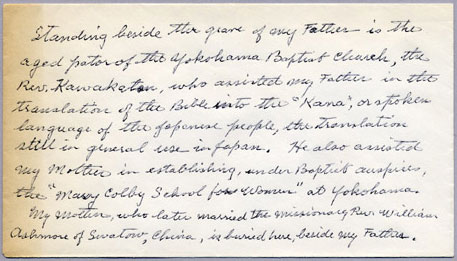 Standing beside the grave of my Father is the
aged pator of the Yokohama Baptist Church, the
Rev. Kawakatsu, who assisted my Father in the
translation of the Bible into the "Kana", or spoken
language of the Japanese people, the translation
still in general use in Japan. He also assisted
my Mother in establishing, under Baptist auspices,
the "Mary Colby School for Women" at Yokohama.
My mother, who later married the missionary Rev. William
Ashmore of Swatow, China, is buried here, beside my Father.